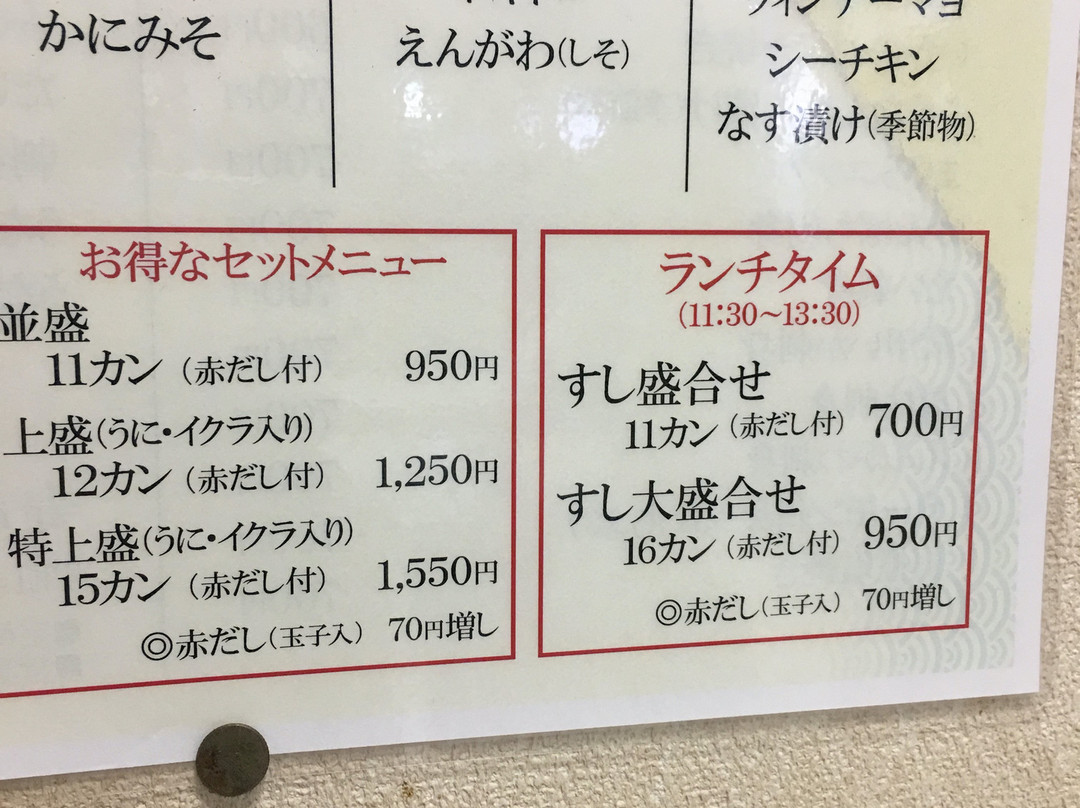 かにみそ
えんがわ(しそ)
シーチキン
なす漬け(季節物)
お得なセットメニュー
並盛
11カン (赤だし付) 950円
上盛(うに・イクラ入り)
12カン (赤だし付) 1,250円
特上盛(うに・イクラ入り)
15カン (赤だし付) 1,550円
◎赤だし(玉子入) 70円増し
ランチタイム
(11:30～13:30)
すし盛合せ
11カン (赤だし付) 700円
すし大盛合せ
16カン (赤だし付) 950円
◎赤だし(玉子入) 70円増し